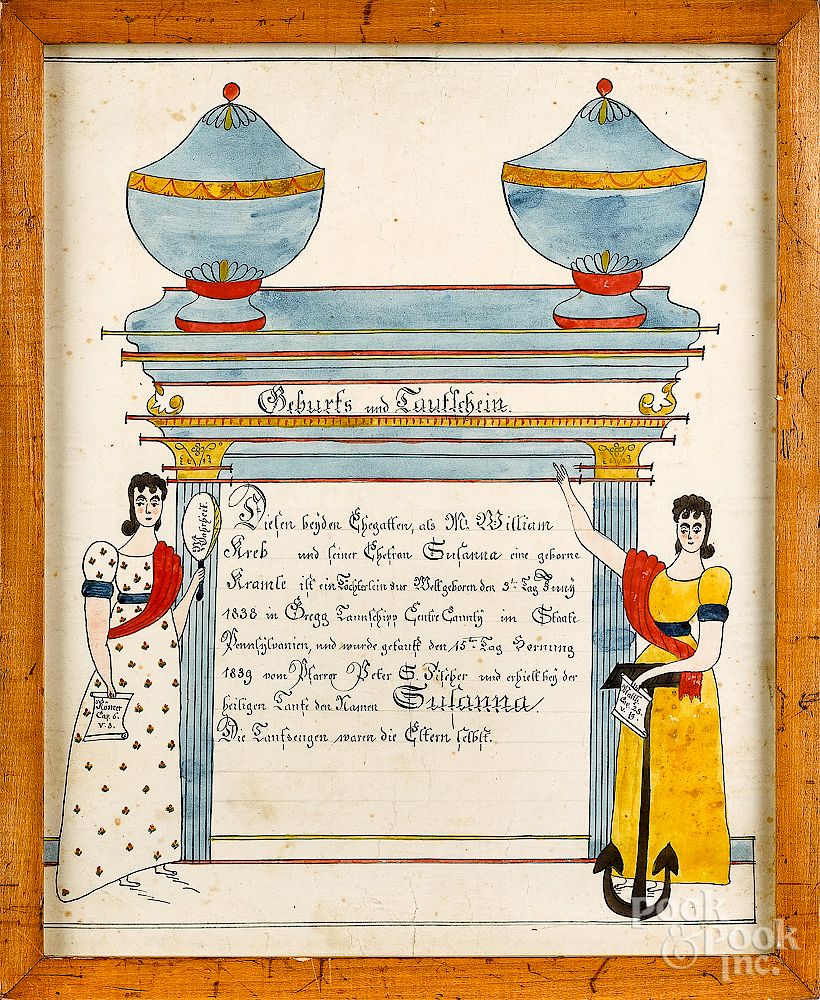 Geburts und Taufschein.
Wahrheit.
Diesen beyden Ehegatten, als Mr. William
Kreb und seiner Ehefrau Susanna eine geborne
Kramle ist ein Töchterlein zur Welt geboren den 5te Tag Juny
1838 in Gregg Taunschipp Centre Caunty im Staate
Pennsylvanien, und wurde getauft den 15ten Tag Hornung
1839 vom Pfarrer Peter S. Fischer und erhielt bey der
heiligen Taufe den Namen Susanna
Die Taufzeugen waren die Eltern selbst.
Römer
Cap. 6.
V. 3.
Cap. 28.
v. 19.
Pook
& Pook
Inc.